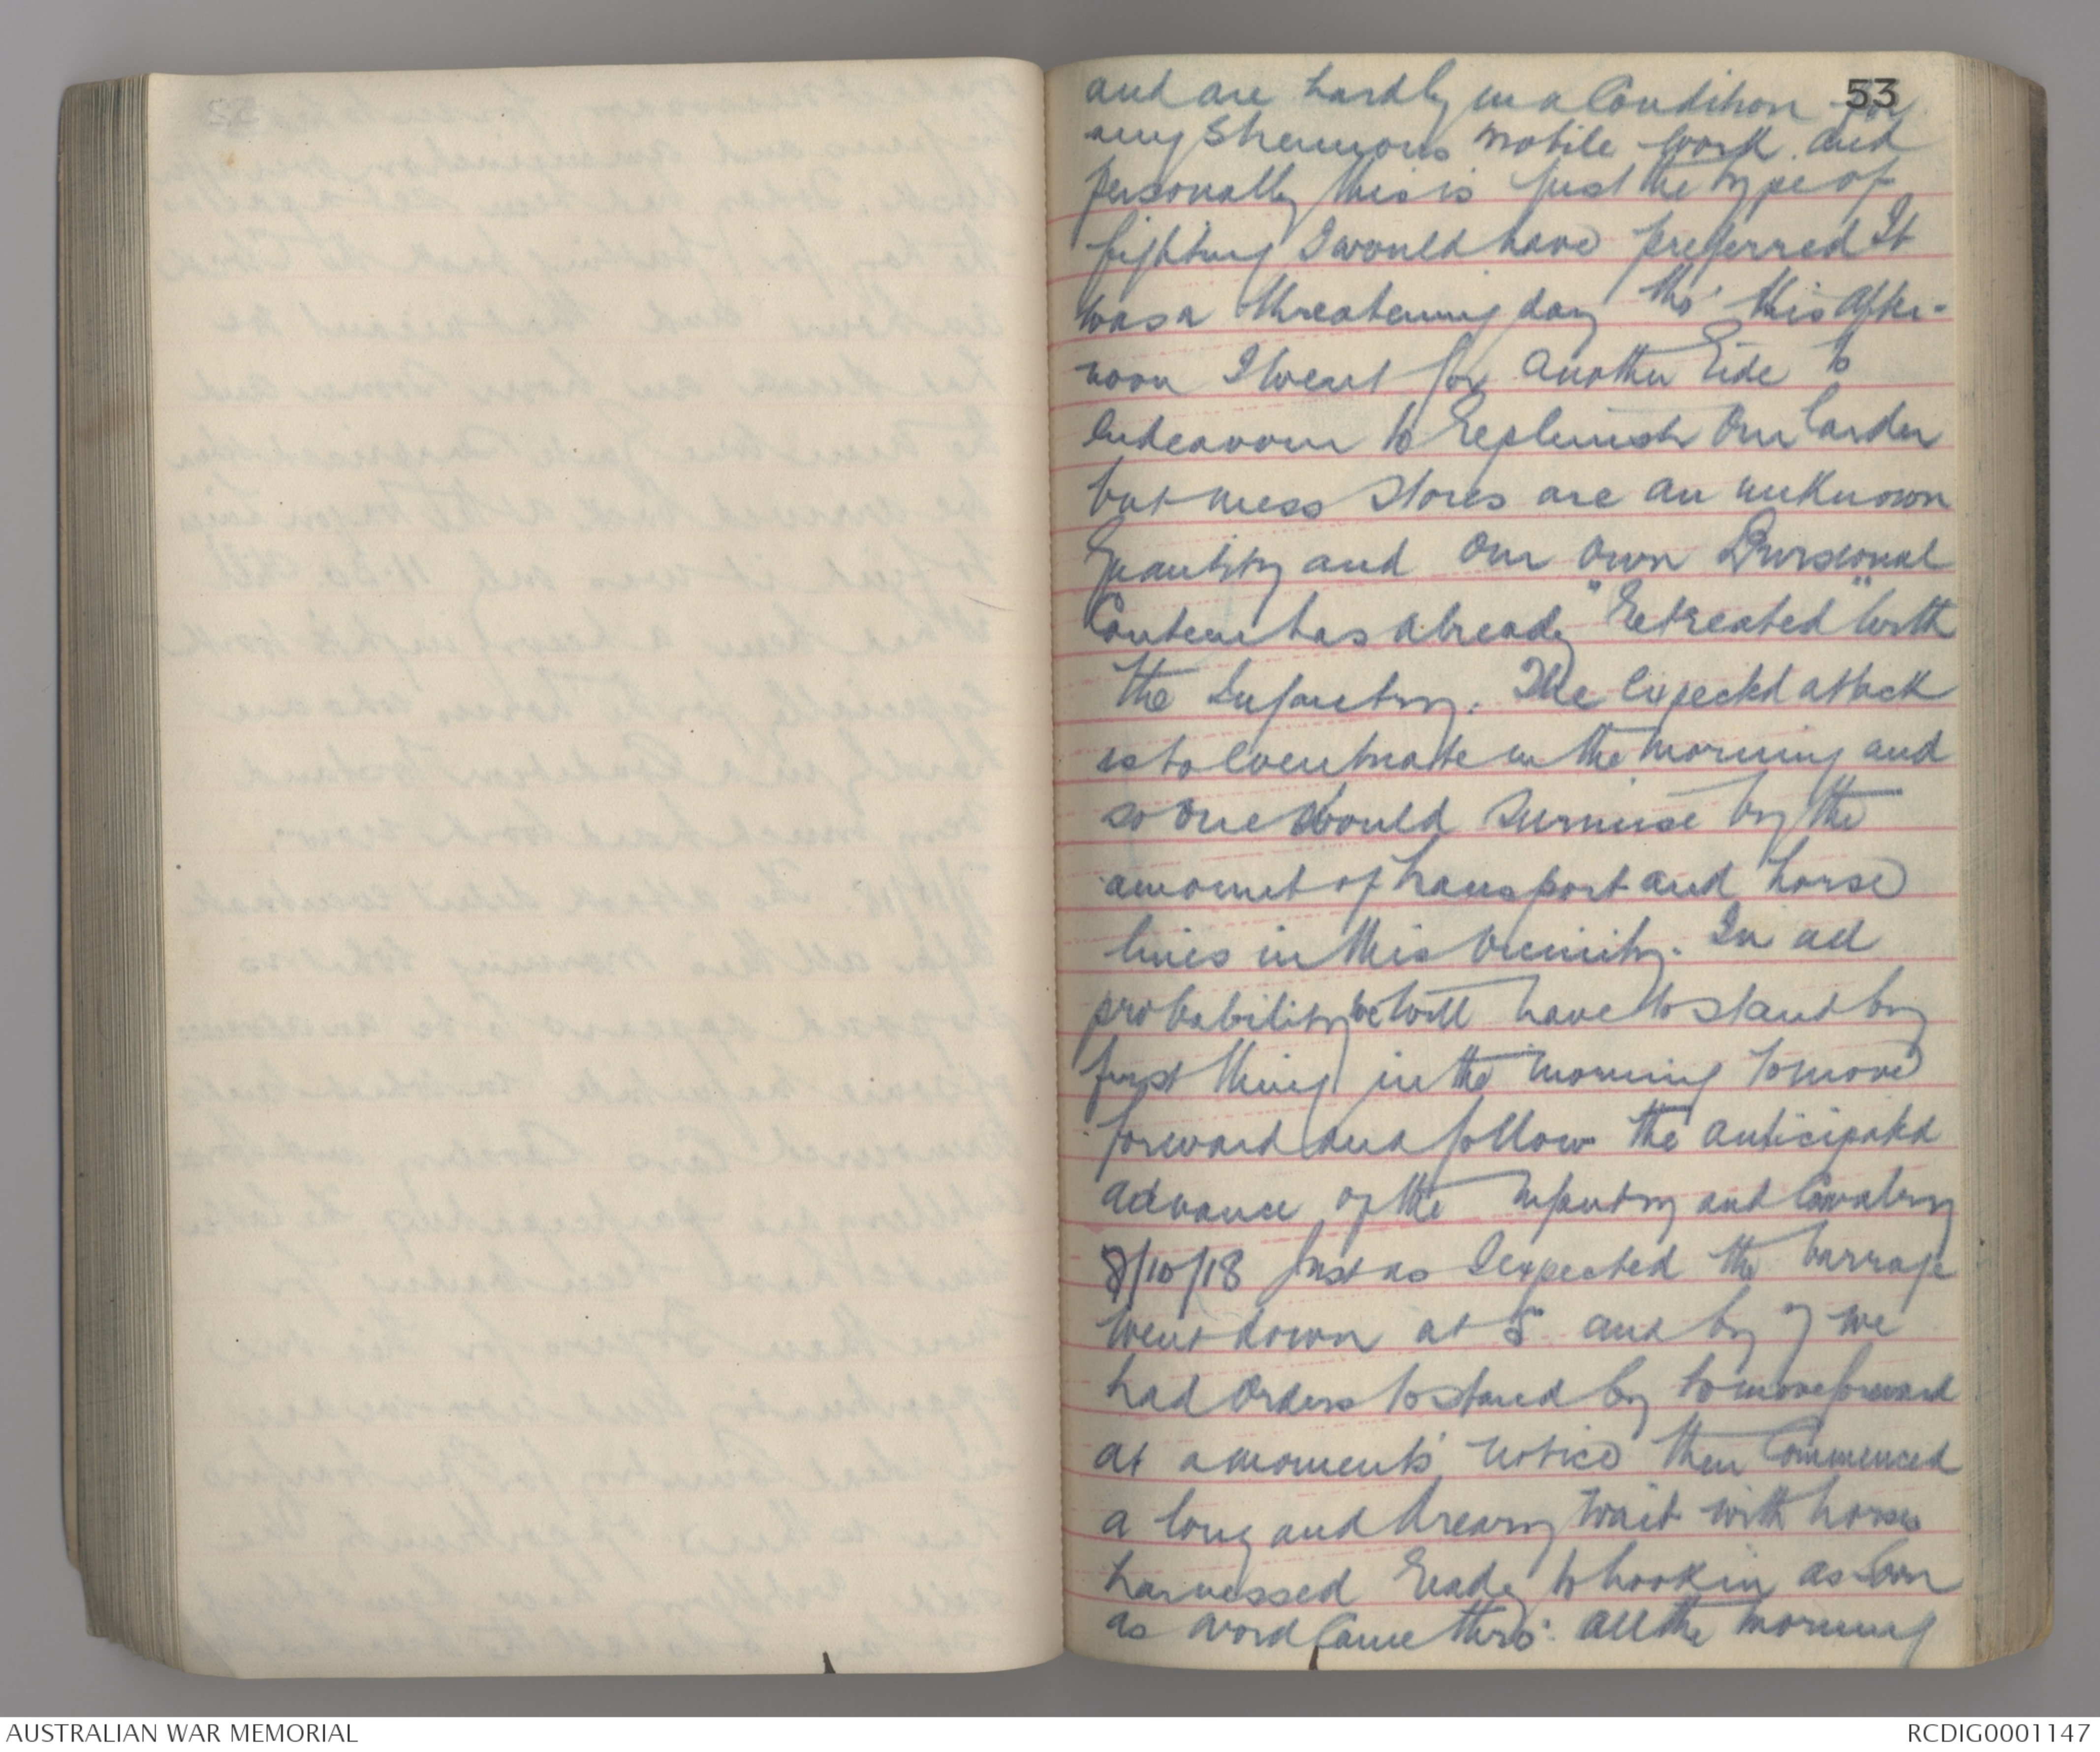 53
and are hardly in a Condition for
any strenuous mobile work and
personally this is just the type of
fighting I would have preferred It
was a threatening day tho' this after-
noon I went for another Ride to
Endeavour to Replenish Our Larder
but mess stores are an unknown
Quantity and Our Own Divisional
Canteen has already "Retreated" with
the Infantry. The Expected attack
is to Eventuate in the morning and
so One would surmise by the
amount of transport and horse
lines in this vicinity. In all
probability we will have to stand by
first thing in the morning to move
forward and follow the anticipated
advance of the Infantry and Cavalry
8/10/18 Just as I expected the barrage
went down at 5 and by 7 we
had Orders to stand by to move forward
at a moments' notice then Commenced
a long and dreary wait with horses
harnessed Ready to hook in as soon
as word Came thro'. All the morning
AUSTRALIAN WAR MEMORIAL
RCDIG0001147